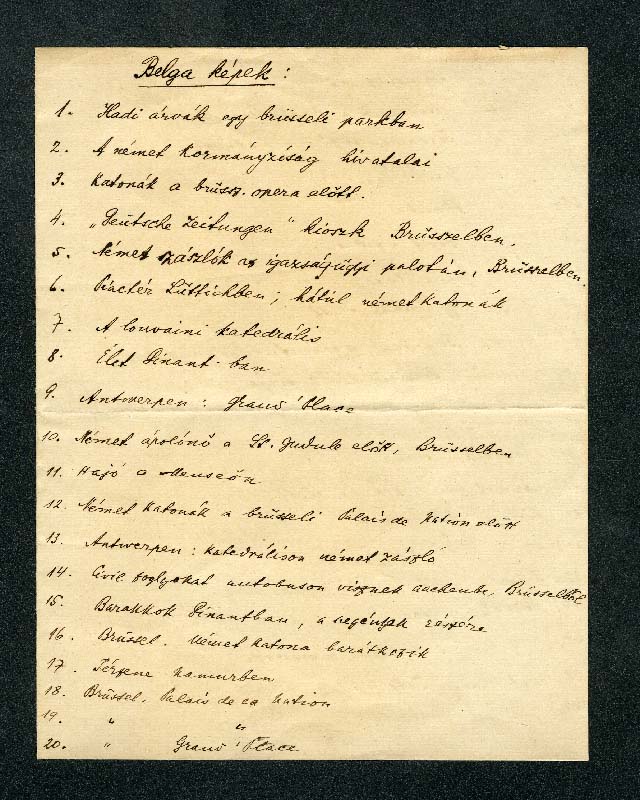 Belga képek :
1. Hadi árvák egy brüsseli parkban
2. A német Kormányzóság hivatalai
3. Katonák a brüssz. opera előtt.
4. „Deutsche Zeitungen" kioszk Brüsszelben.
5. Német zászlók az igazságügyi palotán, Brüsszelben.
6. Piactér Lüttichben; hátul német katonák
7. A louvaini katedrális
8. Élet Dinant-ban
9. Antwerpen : Grand' Place
10. Német ápolónő a St. Gudule előtt, Brüsselben
11. Hajó a Meuseön
12. Német katonák a brüsseli Palais de Nation előtt
13. Antwerpen : Katedrálison német zászló
14. Civil foglyokat autobuson visznek Brüsselből
15. Barakkok Dinantban, a szegények részére
16. Brüssel. Német katona barátkozik
17. Térzene Namurben
18. Brüssel. Palais de la Nation
19. " "
20. " Grand' Place